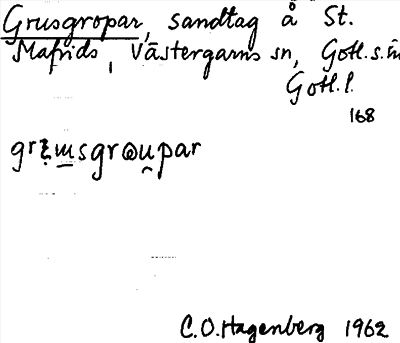 Grusgropar, sandtag å St.
Mafrids, Västergarns sn, Gotl. s. hd
Gotl. l.
168
C.O. Hagenberg 1962